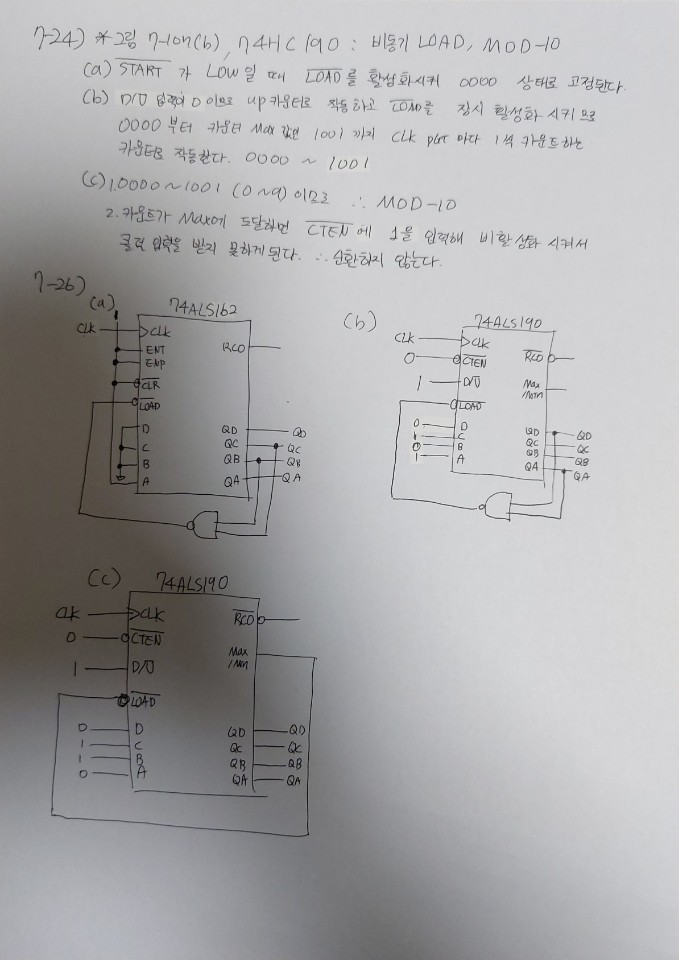 7-24) * 그림 7-107(b), 74HC190 : 비동기 LOAD, MOD-10
(a) START 가 LOW일 때 LOAD를 활성화시켜 0000 상태로 고정된다.
(b) D/U 입력이 0 이므로 up카운터로 작동하고 LOAD를 잠시 활성화 시키므로
0000 부터 카운터 Max 값인 1001 까지 CLK PGT 마다 1씩 카운트하는
카운터로 작동한다. 0000 ~ 1001
(c) 1. 0000~1001 (0~9) 이므로 ∴ MOD-10
2. 카운트가 Max에 도달하면 CTEN 에 1을 입력해 비활성화 시켜서
클럭 입력을 받지 못하게 된다. ∴ 순환하지 않는다.
7-26)
(a)
74ALS162
CLK
CLK
ENT
ENP
CLR
LOAD
D
C
B
A
RCO
QD
QC
QB
QA
QD
QC
QB
QA
(b)
74ALS190
CLK
CLK
0
CTEN
1
D/U
LOAD
0
D
1
C
0
B
1
A
RCO
Max
/Min
QD
QC
QB
QA
QD
QC
QB
QA
(c)
74ALS190
CLK
CLK
0
CTEN
1
D/U
LOAD
0
D
1
C
1
B
0
A
RCO
Max
/Min
QD
QC
QB
QA
QD
QC
QB
QA